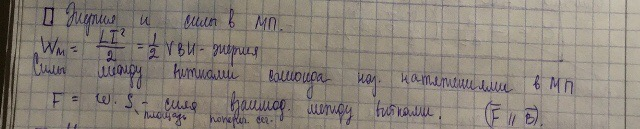 □ Энергия и силы в МП.
Wм = LI²/2 = 1/2 VBH - энергия
Силы между витками соленоида наз. натяжениями в МП
F = w · S - сила взаимод. между витками. (F̅ || B̅)
площадь попереч. сеч.